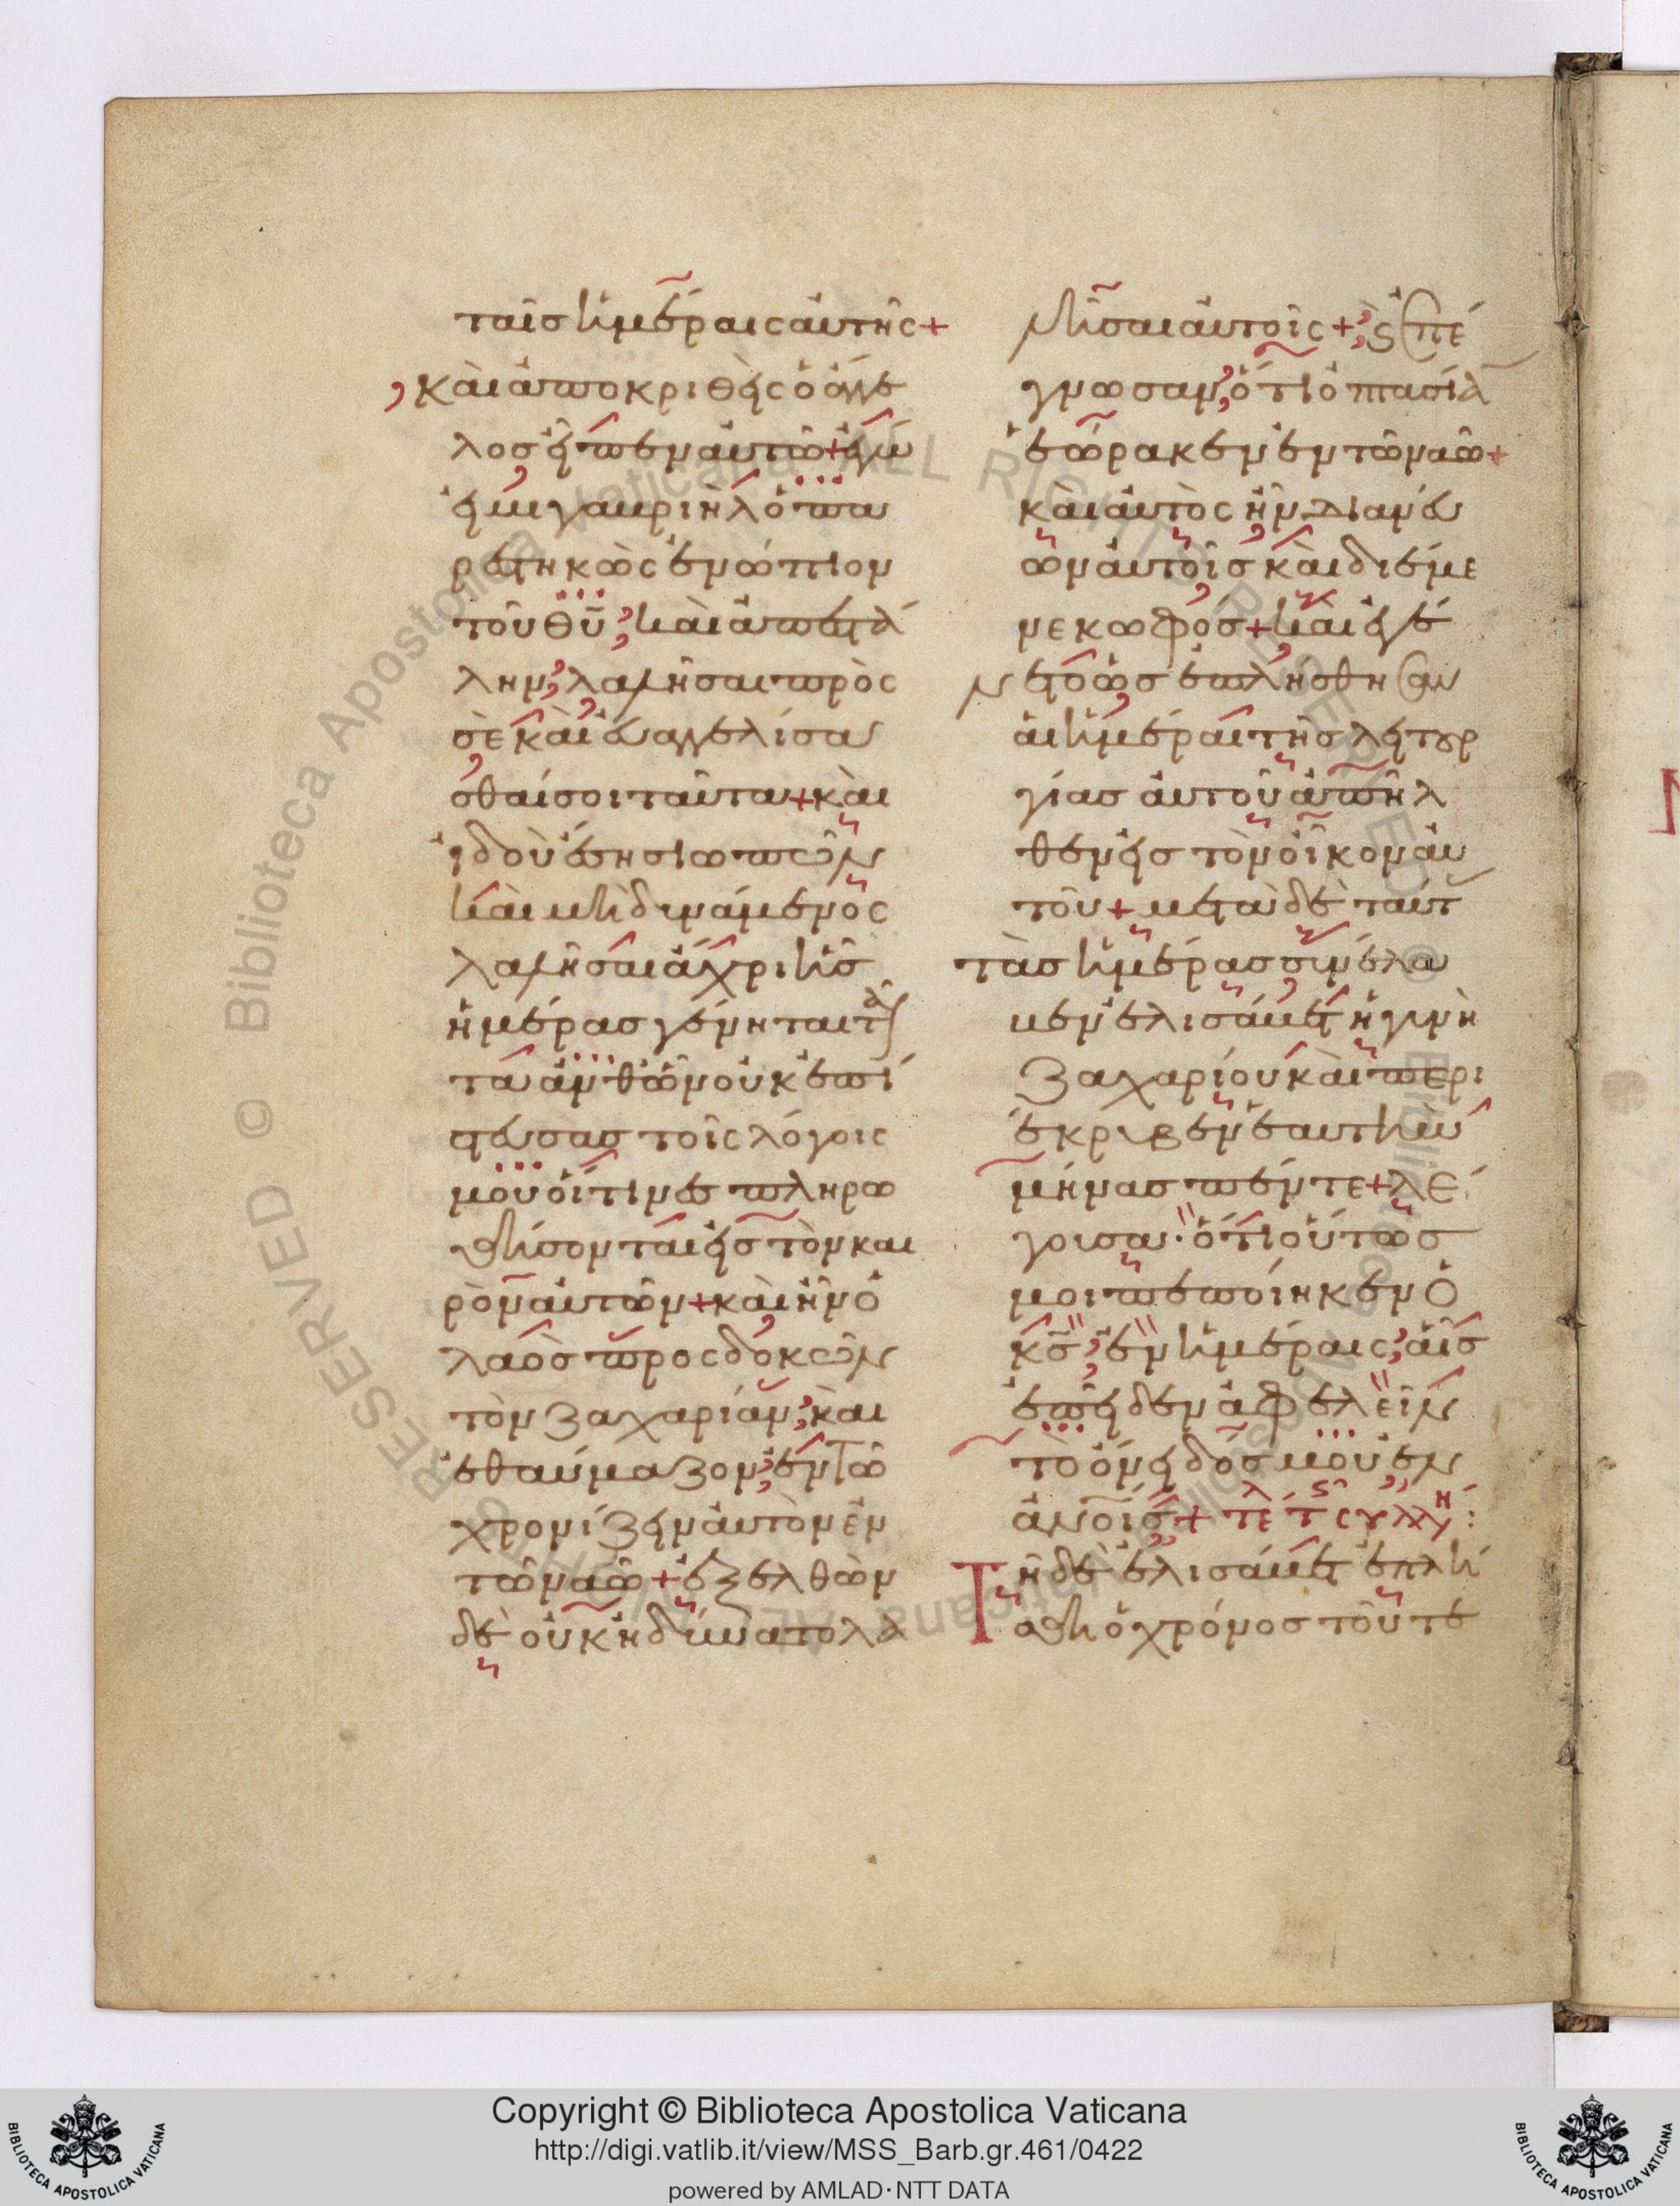 ταῖσ ἡμέραις ἀυτῆς +
κὰι ἀποκριθεὶς ὁ ἄγγε
λοσ εἶπεν ἀυτῶ + ἐγώ
εἰμι γαβριὴλ ὁ πα
ρεστηκὼς ἐνώπιον
τοῦ θῦ, κὰι ἀπεστά
λην, λαλῆσαι πρὸς
σὲ κὰι ἐυαγγελίσα
σθαί σοι ταῦτα + κὰι
ἰδοὺ ἔση σιωπῶν
κὰι μὴ δυνάμενος
λαλῆσαι ἄχρι ἧσ
ἡμέρασ γένηται ταῦ
τα ἀνθ ὧν οὐκ ἐπί
στευσασ τοῖς λόγοις
μου ὅιτινεσ πληρω
θήσονται εἰσ τὸν και
ρὸν ἀυτῶν + κὰι ἦν ὁ
λαὸσ προσδοκῶν
τὸν ζαχαρίαν, κὰι
ἐθαύμαζον, ἐν τῶ
χρονίζειν ἀυτὸν ἐν
τῶ ναῶ + ἐξελθὼν
δὲ οὐκ ἠδύνατο λα
λῆσαι ἀυτοῖς +, ϛ ἐπέ
γνωσαν, ὅτι ὀπτασίαν
ἑώρακεν ἐν τῶ ναῶ +
κὰι ἀυτὸς ἦν διανεύ
ων ἀυτοῖσ κὰι διέμε
νε κωφόσ + κὰι ἐγέ
νετο ὡσ ἐπλήσθησαν
ἁι ἡμέραι τῆσ λειτουρ
γίασ ἀυτοῦ ἀπῆλ
θεν εἰσ τὸν οἶκον ἀυ
τοῦ + μετὰ δὲ ταύτ
τὰσ ἡμέρασ συνέλα
βεν ἐλισάβετ ἡ γυνὴ
ζαχαρίου κὰι περι
έκρυβεν ἑαυτὴν
μήνασ πέντε + λέ
γουσα · ὅτι οὕτωσ
μοι πεποίηκεν ὁ
κσ, ἐν ἡμέραις, ἇισ
ἐπεῖδεν ἀφελεῖν
τὸ ὄνειδόσ μου ἐν
ἀνοισ + τέλ τσ συλλήψ :
Τῆ δὲ ἐλισάβετ ἐπλή
σθη ὁ χρόνοσ τοῦ τε
Copyright © Biblioteca Apostolica Vaticana
http://digi.vatlib.it/view/MSS_Barb.gr.461/0422
powered by AMLAD·NTT DATA
BIBLIOTECA APOSTOLICA VATICANA
BIBLIOTECA APOSTOLICA VATICANA